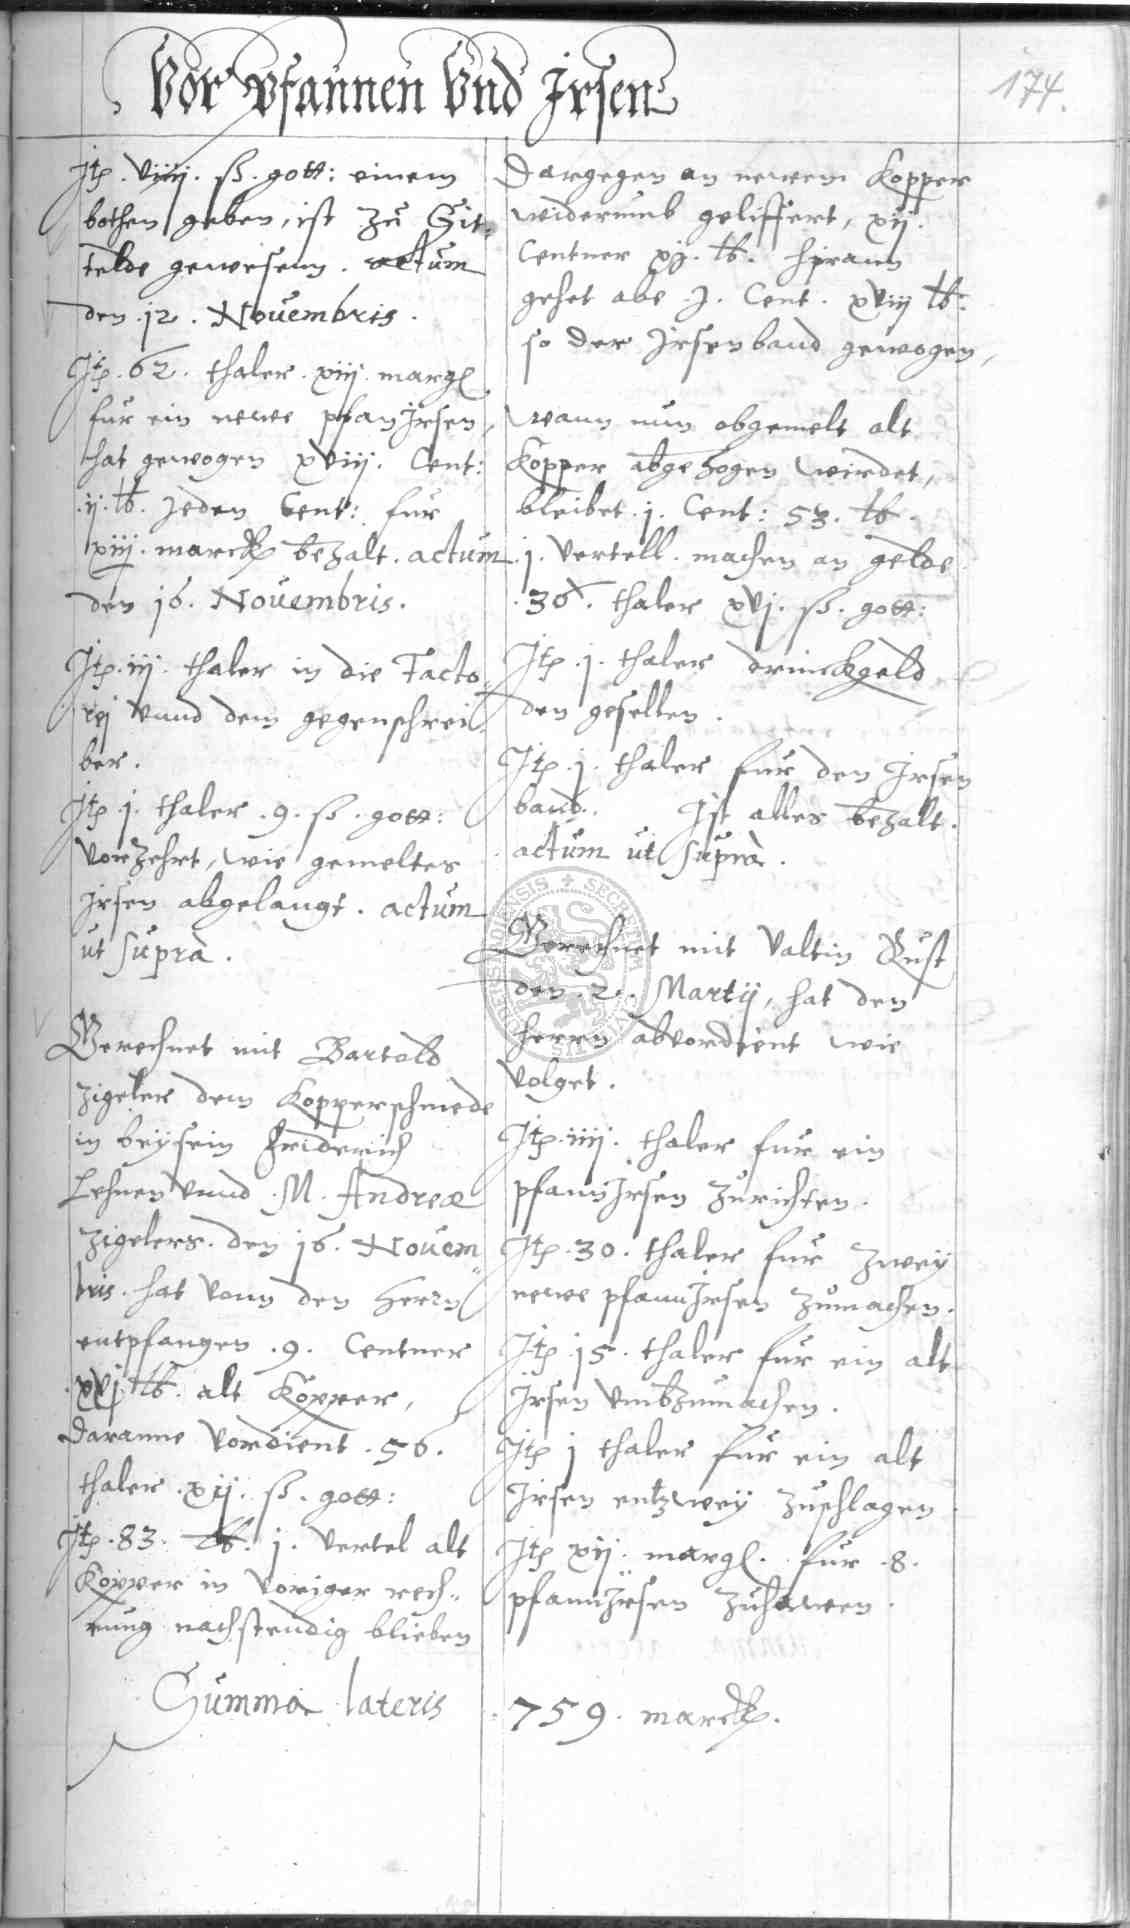 Vor Pfannen Vnd Irsen
174.
Itp. viiij. ß. gott: einem
bothen geben, ist zu Git-
telde gewesenn. actum
den .12. Nouembris.
Itp. 62. thaler. xiij. margl
fur ein newe pfanIrsen,
hat gewogen xviij. Cent:
.ij. lb. Jeden Cent: fur
xiij. marck bezalt. actum
den 16. Nouembris.
Itp. iij. thaler in die Facto
rej vnnd dem gegenschrei-
ber.
Itp j. thaler .9. ß. gott:
vorzehrt, wie gemeltes
Irsen abgelangt. actum
ut supra.
Berechnet mit Bartold
Zigeler dem Kopperschmede
in beysein Friderich
Lehnen vnnd .M. Andreæ
Zigelers. den 16. Nouem
bris. hat vonn den Herrn
entpfangen .9. Centner
xvj lb. alt Kopper,
daranne vordient .56.
thaler .xij. ß. gott:
Itp .83. lb. j. vertel alt
Kopper in voriger rech-
nung nachstendig blieben
Dargegen an newem Kopper
widerumb geliffert, xij.
Centner xj. lb. hirann
gehet abe .j. Cent. xviij lb.
so der Irsenband gewogen,
wann nun obgemelt alt
Kopper abgezogen wirdet,
bleibet .j. Cent: 53. lb.
.j. vertell. machen an gelde
.36. thaler xvj. ß. gott:
Itp .j. thaler drinckgeld
den gesellen.
Itp .j. thaler fur den Irsen
band. Ist alles bezalt.
actum ut supra.
Berechnet mit Valtin Rust
den .2. Martij, hat den
herrn abvordient wie
volget.
Itp. iiij. thaler fur ein
pfannIrsen zurichten.
Itp .30. thaler fur zwey
newe pfannIrsen zumachen.
Itp .15. thaler fur ein alt
Irsen vmbzumachen.
Itp j thaler fur ein alt
Irsen entzwey zuschlagen.
Itp xij. margl. fur .8.
pfannIrsen zuhawen.
Summa lateris .759. marck.